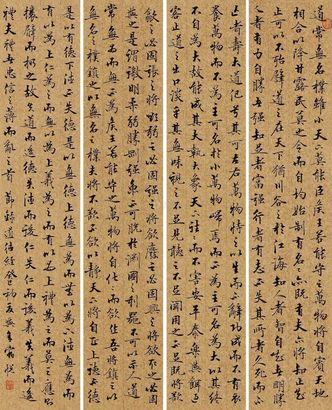 道常無名樸雖小天下莫能臣侯王若能守之萬物將自賓天地
相合以降甘露民莫之令而自均始制有名名亦既有夫亦將知止知
止可以不殆譬道之在天下猶川谷之於江海知人者智自知者明勝
人者有力自勝者强知足者富强行者有志不失其所者久死而不
亡者壽大道氾兮其可左右萬物恃之以生而不辭功成而不有衣
養萬物而不為主可名於小萬物歸焉而不為主可名為大以其終
不自為大故能成其大執大象天下往往而不害安平泰樂與餌過
客止道之出口淡乎其無味視之不足見聽之不足聞用之不足既將
欲歙之必固張之將欲弱之必固强之將欲廢之必固興之將欲奪之必固
與之是謂微明柔弱勝剛强魚不可脱於淵國之利器不可以示人道
常無為而無不為侯王若能守之萬物將自化化而欲作吾將鎮之以
無名之樸鎮之以無名之樸夫將不欲不欲以靜天下將自正上德不德
是以有德下德不失德是以無德上德無為而無以為下德無為而
有以為上仁為之而無以為上義為之而有以為上禮為之而莫之應則
攘臂而扔之故失道而後德失德而後仁失仁而後義失義而後
禮夫禮者忠信之薄而亂之首 節錄道德經癸巳初夏